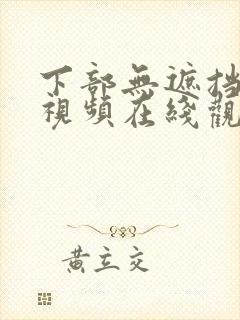 下部無遮挡
視頻在綫觀
黃立交